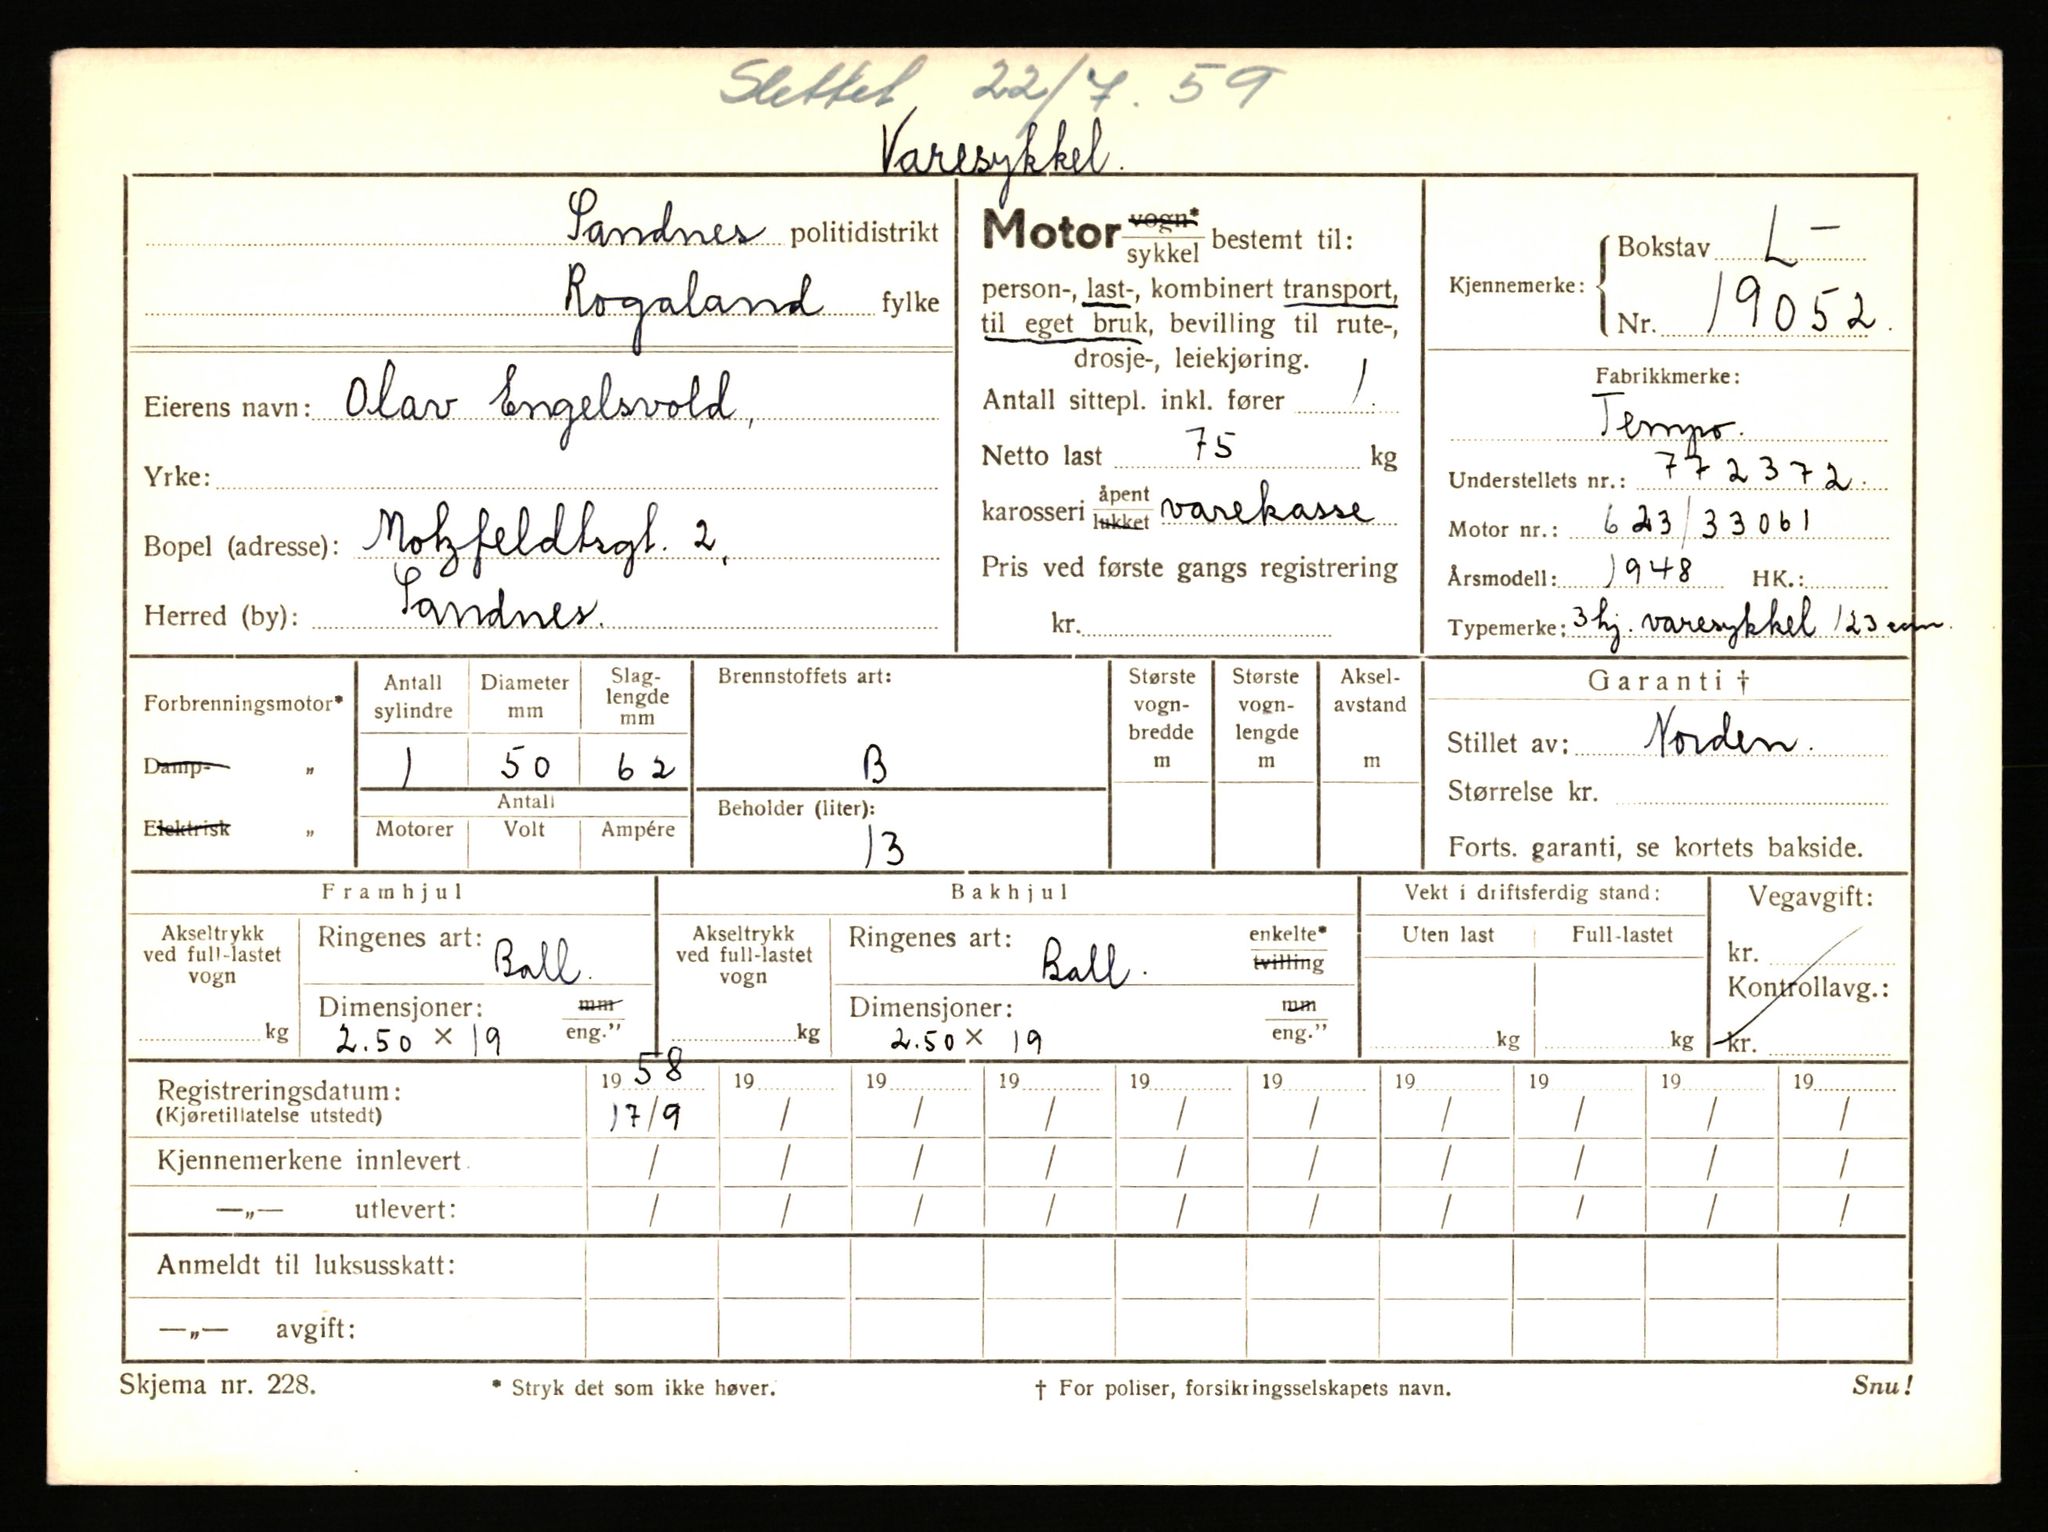 Slettet 22/7. 59
Varesykkel.
Sandnes politidistrikt
Rogaland fylke
Eierens navn: Olav Engelsvold,
Yrke:
Bopel (adresse): Motzfeldtsgt. 2,
Herred (by): Sandnes.
Motor vogn* sykkel bestemt til:
person-, last-, kombinert transport,
til eget bruk, bevilling til rute-,
drosje-, leiekjøring.
Antall sittepl. inkl. fører 1.
Netto last 75 kg
karosseri åpent lukket varekasse
Pris ved første gangs registrering
kr.
Kjennemerke:
Bokstav L-
Nr. 19052.
Fabrikkmerke:
Tempo.
Understellets nr.: 772372.
Motor nr.: 623/33061
Årsmodell: 1948 HK.:
Typemerke: 3 hj. varesykkel 123 ccm.
Forbrenningsmotor*
Damp- „
Elektrisk „
Antall sylindre Diameter mm Slag-lengde mm
1 50 62
Antall
Motorer Volt Ampére
Brennstoffets art:
B
Beholder (liter):
13
Største vogn-bredde m
Største vogn-lengde m
Aksel-avstand m
Garanti †
Stillet av: Norden.
Størrelse kr.
Forts. garanti, se kortets bakside.
Framhjul
Akseltrykk
ved full-lastet
vogn
kg
Ringenes art: Ball.
Dimensjoner: mm
2.50 × 19 eng.”
Bakhjul
Akseltrykk
ved full-lastet
vogn
kg
Ringenes art: Ball. enkelte* tvilling
Dimensjoner: mm
2.50 × 19 eng.”
Vekt i driftsferdig stand:
Uten last Full-lastet
kg kg
Vegavgift:
kr.
Kontrollavg.:
kr.
Registreringsdatum: 19 58 19 19 19 19 19 19 19 19 19
(Kjøretillatelse utstedt) 17/9 / / / / / / / / /
Kjennemerkene innlevert / / / / / / / / / /
—„— utlevert: / / / / / / / / / /
Anmeldt til luksusskatt:
—„— avgift:
Skjema nr. 228. * Stryk det som ikke høver. † For poliser, forsikringsselskapets navn. Snu!